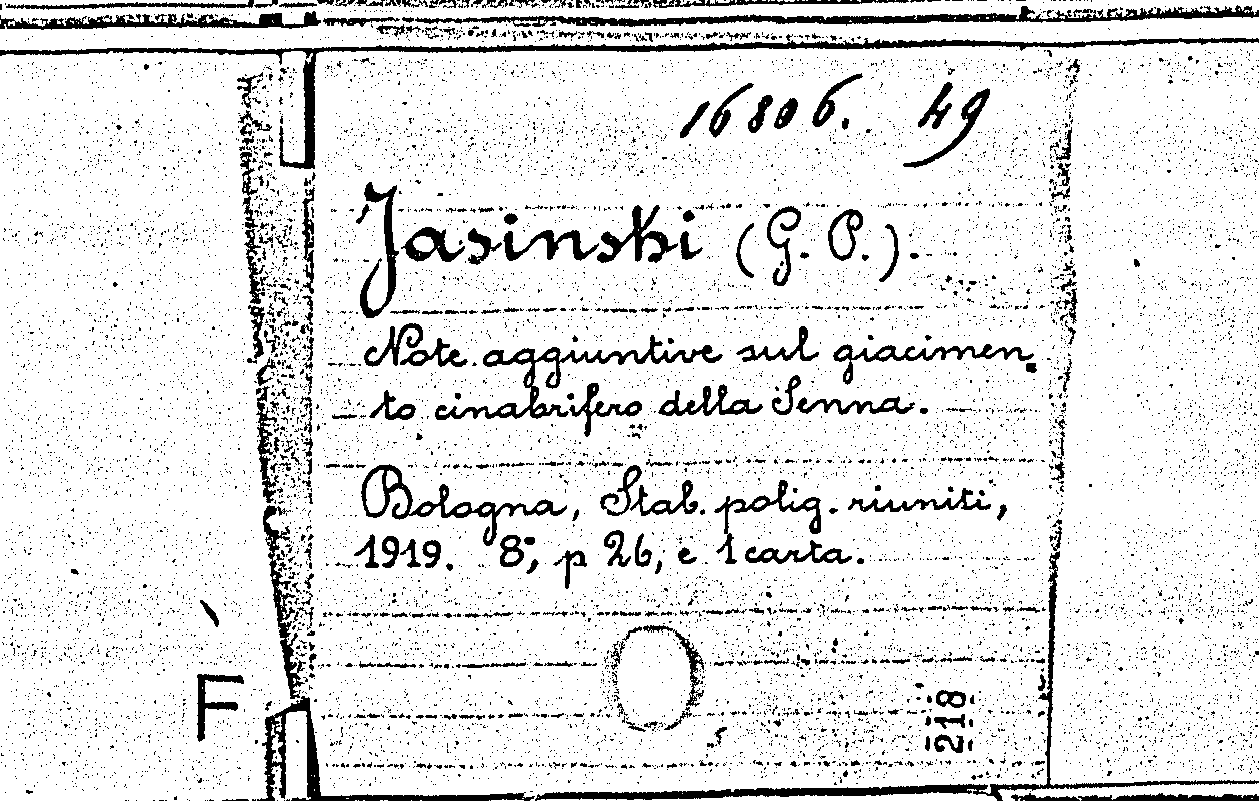 16806. 49
Jasinski (G. P.).
Note aggiuntive sul giacimen
to cinabrifero della Senna.
Bologna, Stab. polig. riuniti,
1919. 8°, p 26, e 1 carta.
F
218